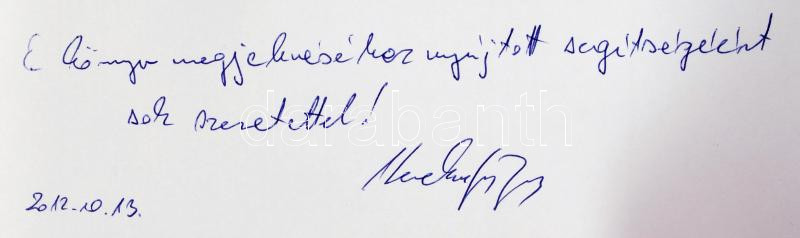 E könyv megjelenéséhez nyújtott segítségéért
sok szeretettel!
darabanth
2012.10.13.